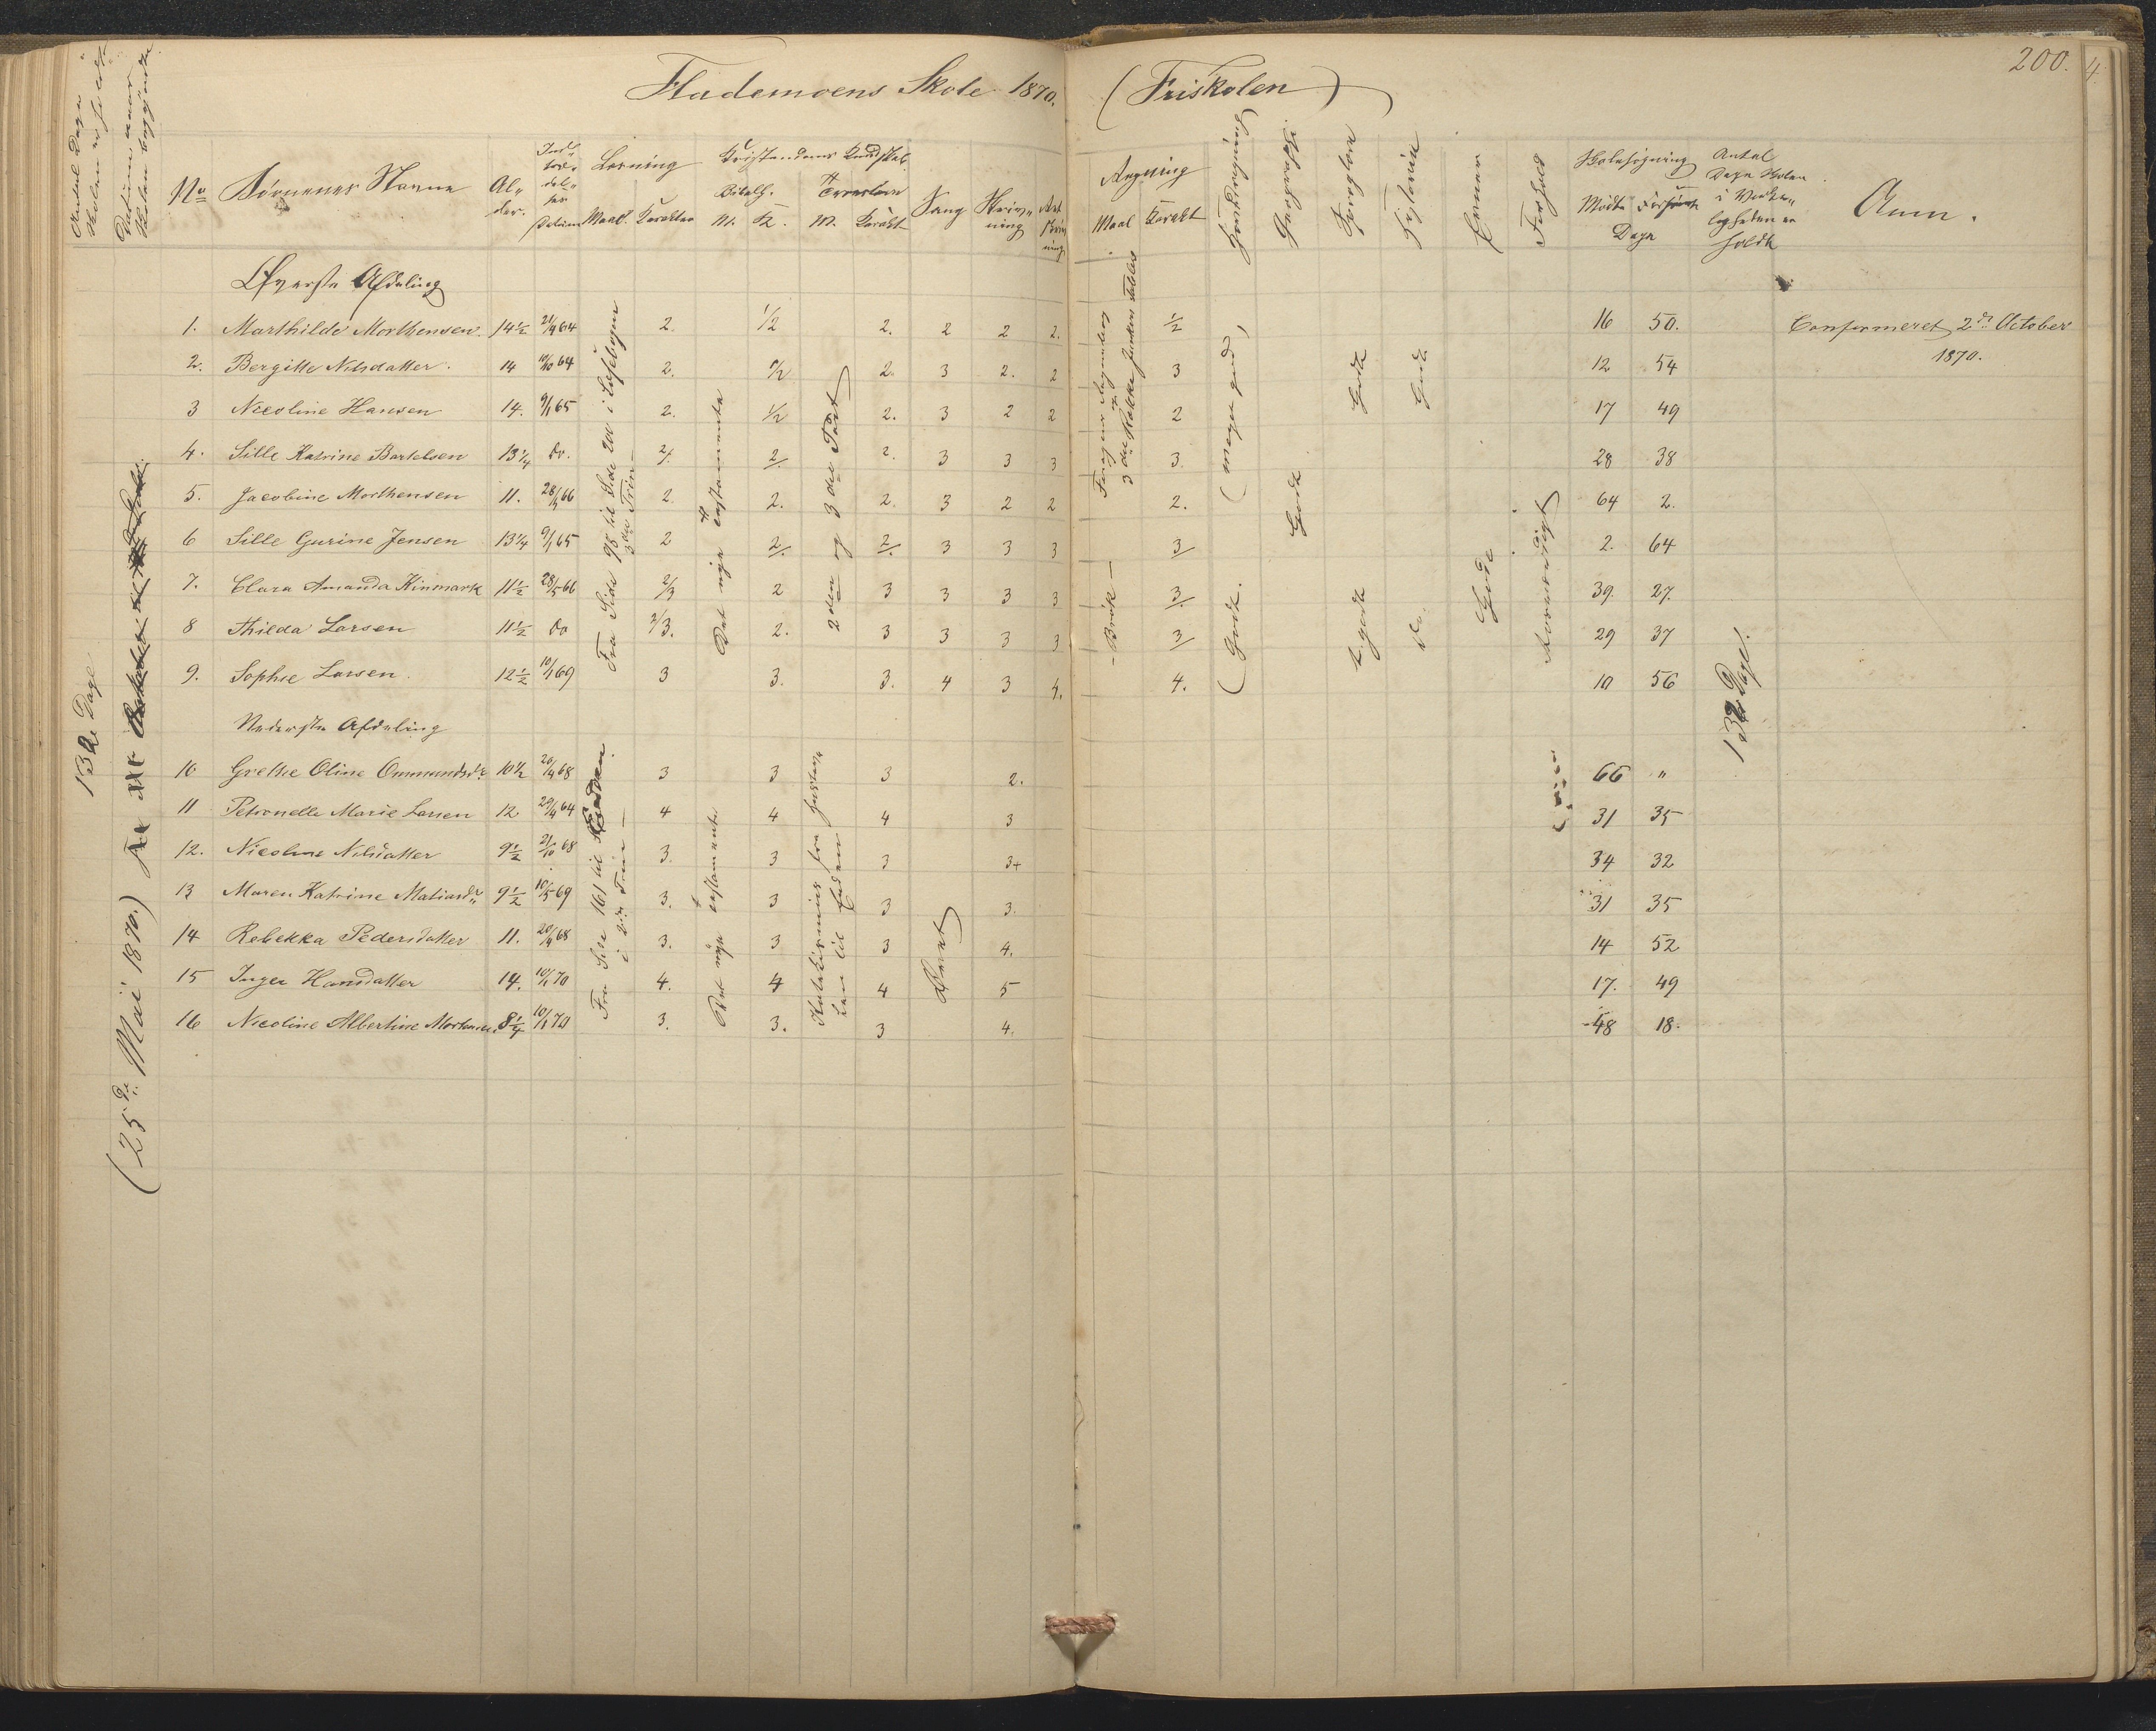 Flademoens Skole 1870. (Friskolen)
200.
4
Antal Dage Skolen
Datum naar Skolen begyndte
No Børnenes Navne Alder. Indtrædelses Datum Læsning Kristendoms Kundskab Sang Skrivning Regning
Maal. Karakter Bibelh. M. K. Troeslære M. Karakt Maal Karakt
Jordbeskrivning Geographi Historie Evner Forhold
Skolesøgning Mødte Forsømte Dage
Antal Dage Skolen i Virkeligheden er holdt
Anm.
Øverste Afdeling
1. Marthilde Morthensen. 14½ 21/4 64 2. ½ 2. 2 2 2. ½ 16 50. Confirmeret 2den October 1870.
2. Bergitte Nilsdatter. 14 10/10 64 2. ½ 2. 3 2. 2 3 12 54
3 Nicoline Hansen 14. 9/1 65 2. ½ 2. 3 2 2 2 17 49
4. Sille Katrine Bartelsen 13¼ do. 2/. 2/. 2. 3 3 3 3. 28 38
5. Jacobine Morthensen 11. 28/5 66 2. 2. 2. 3 2 2 2. 64 2.
6 Sille Gurine Jensen 13¼ 9/1 65 2 2/. 2/. 3 3 3 3/ 2. 64
7. Clara Amanda Kinmark 11½ 28/5 66 2/3 2 3 3 3 3 3/ 39. 27.
8 Thilda Larsen 11½ do 2/3. 2. 3 3 3 3 3/ 29 37
9. Sophie Larsen. 12½ 10/1 69 3 3. 3. 4 3 4. 4. 10 56
Nederste Afdeling
10 Grethe Oline Ommundsdr 10½ 20/4 68 3 3 3 2. 66 "
11 Petronelle Marie Larsen 12 29/4 64 4 4 4 3 31 35
12. Nicoline Nilsdatter 9½ 21/10 68 3. 3 3 3+ 34 32
13 Maren Katrine Matiasdr 9½ 10/5 69 3. 3 3 3. 31 35
14 Rebekka Pedersdatter 11. 20/4 68 3. 3 3 4. 14 52
15 Inger Hansdatter 14. 10/1 70 4. 4 4 5 17. 49
16 Nicoline Albertine Mortensen. 8¼ 10/1 70 3. 3. 3 4. 48 18.
132 Dage
(25de Mai 1870.)
Fra Side 98 til Side 200 i Læsebogen 3die Trin
Det nye Testamente
2den og 3die Part
3die Række
Brøk
(meget god)
(Godt.
Godt
Godt
Godt
t. godt
do.
Gode
Fra Side 161 til Enden i 2det Trin
Det nye Testamente
Katekismus fra til Enden
Lærvet
132 Dage.